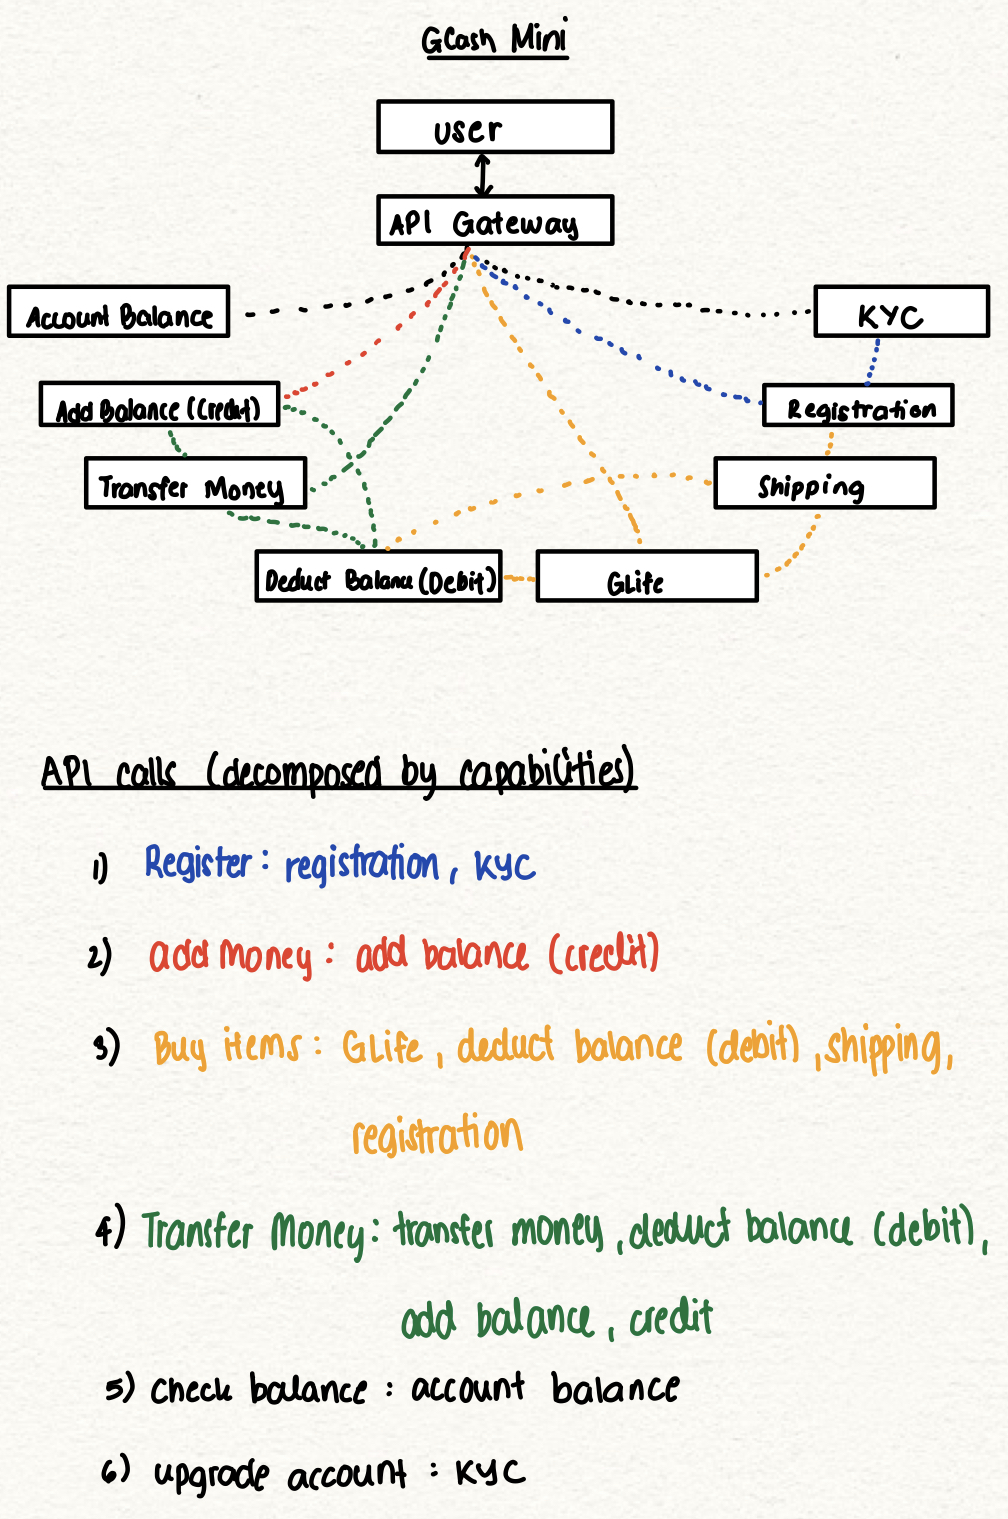 GCash Mini
user
API Gateway
Account Balance
KYC
Add Balance (Credit)
Registration
Transfer Money
Shipping
Deduct Balance (Debit)
GLife
API calls (decomposed by capabilities)
1) Register : registration, KYC
2) add money : add balance (credit)
3) Buy items : GLife, deduct balance (debit), shipping,
registration
4) Transfer Money : transfer money, deduct balance (debit),
add balance, credit
5) check balance : account balance
6) upgrade account : KYC